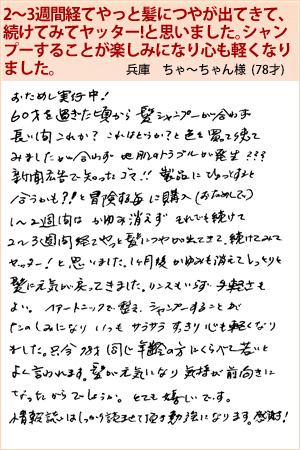 2〜3週間経てやっと髪につやが出てきて、
続けてみてヤッター!と思いました。シャン
プーすることが楽しみになり心も軽くなり
ました。
兵庫 ちゃ〜ちゃん様 (78才)
おためし実行中!
60才を過ぎた頃から髪シャンプーが合わず
長い間これか?これはどうか?と色々買って
みましたが合わず 地肌のトラブルが発生???
新聞広告で知ったゴマ!! 製品にひょっとすると
合うかも?!と冒険する為に購入(おためしで)
1〜2週間は かゆみ消えず それでも続けて
2〜3週間経てやっと髪につやが出てきて、続けてみて
ヤッター!と思いました。1ヶ月後かゆみも消えてしっとりと
髪に元気が戻ってきました。リンスもいらず手軽さも
よい。ヘアートニックで整え、シャンプーすることが
たのしみになり いつも サラサラ すっきり 心も軽くなり
ました。只今78才 同じ年齢の方にくらべて若いと
よく言われます。髪が元気になり 気持が前向きに
なったからでしょうか。とても嬉しいです。
情報誌はしっかり読ませて頂き勉強になります。感謝!